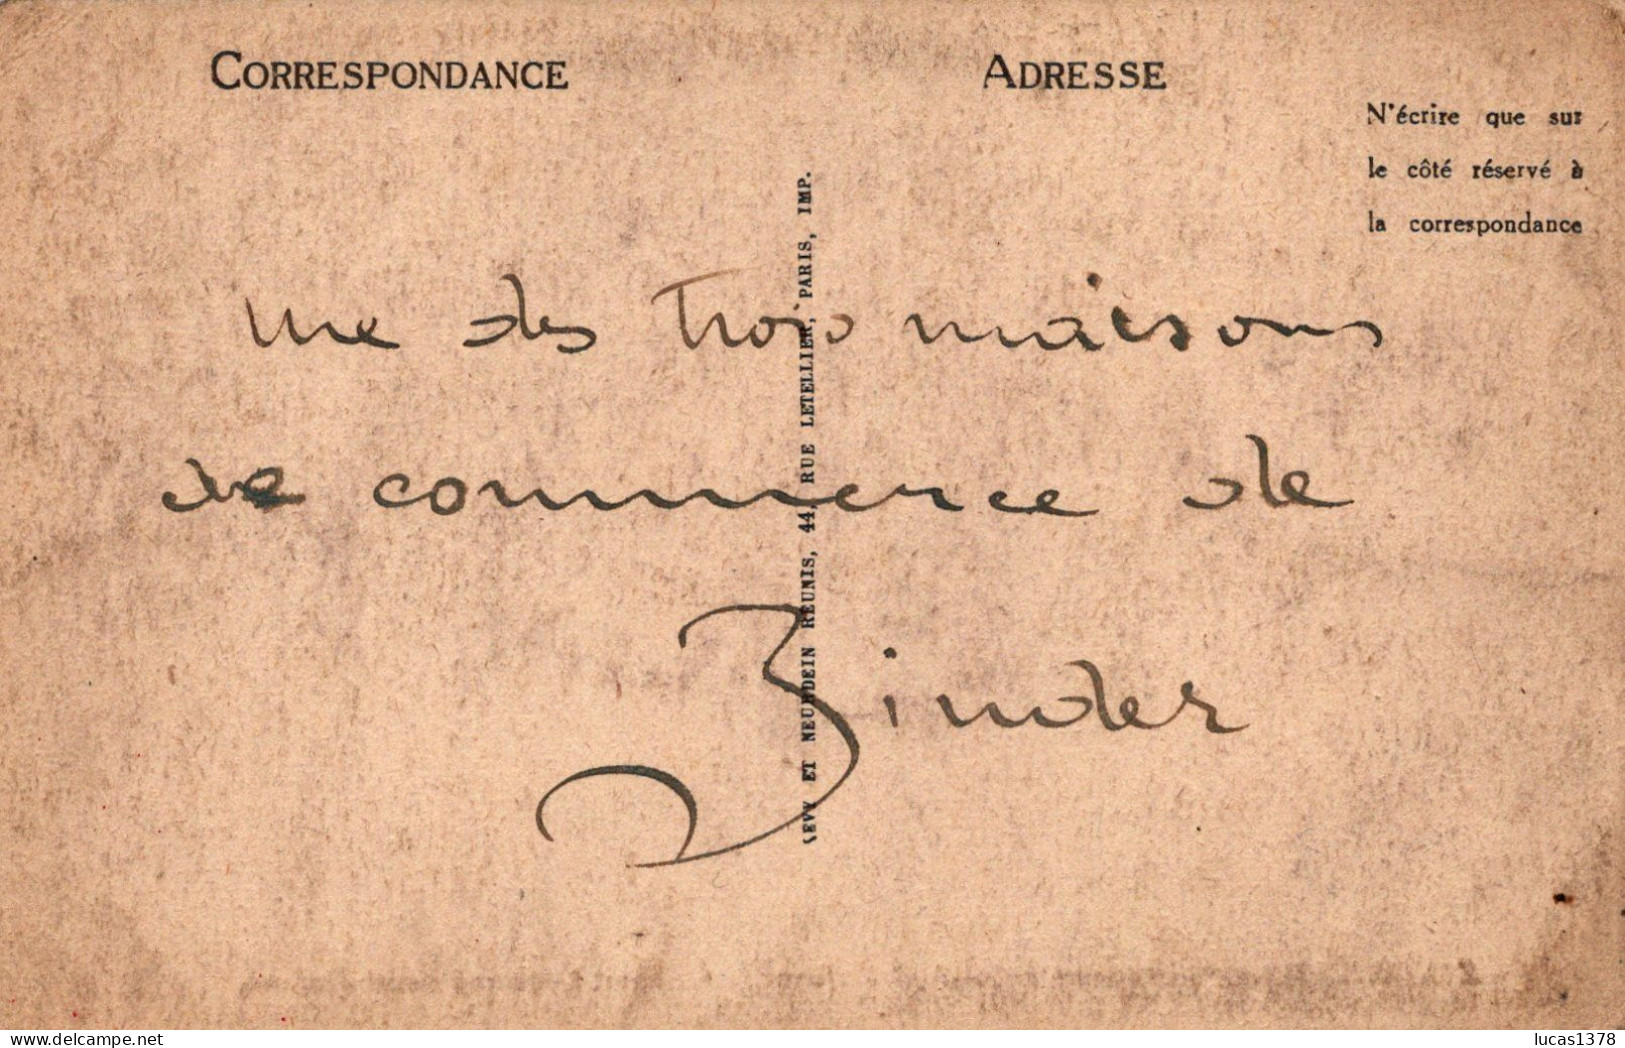 CORRESPONDANCE
ADRESSE
N'écrire que sur
le côté réservé à
la correspondance
une des Trois maisons
de commerce de
Binder
LEVY ET NEURDEIN REUNIS, 44, RUE LETELLIER, PARIS, IMP.
www.delcampe.net
lucas1378